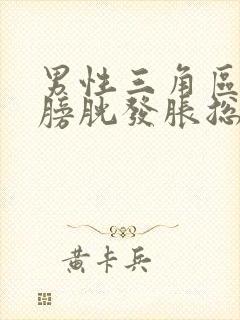 男性三角區
膀胱發脹總
黃卡兵